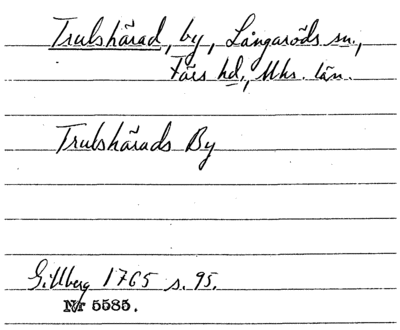 Trulshärad, by, Långaröds sn.,
Färs hd., Mhs. län.
Trulshärads By
Gillberg 1765 s. 95.
Nr 5585.